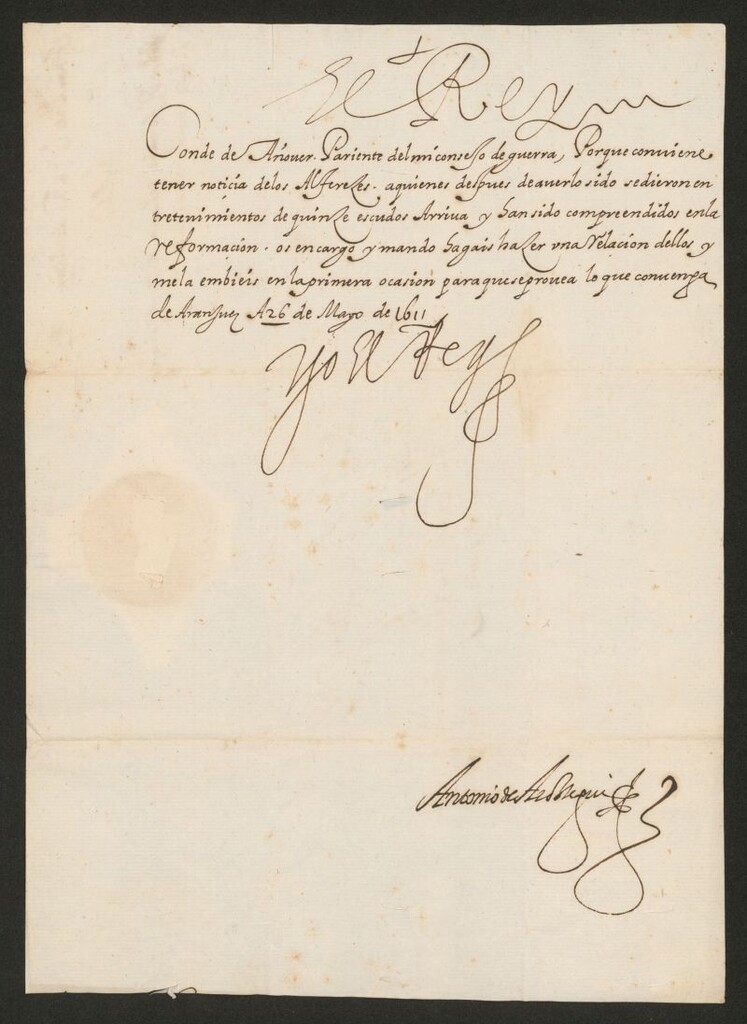 El Rey
Conde de Añover. Pariente del mi consejo de guerra, Porque conviene
tener noticia delos Alferezes. aquienes despues deaverlo sido sedieron en
tretenimientos de quinze escudos Arriva y han sido compreendidos enla
reformaçion. os encargo y mando hagais hazer vna Relaçion dellos y
mela embieis enlaprimera ocasion paraqueseprovea loque convenga
de Aranjuez A 26 de Mayo de 1611
Yo El Rey
Antonio de Aróztegui